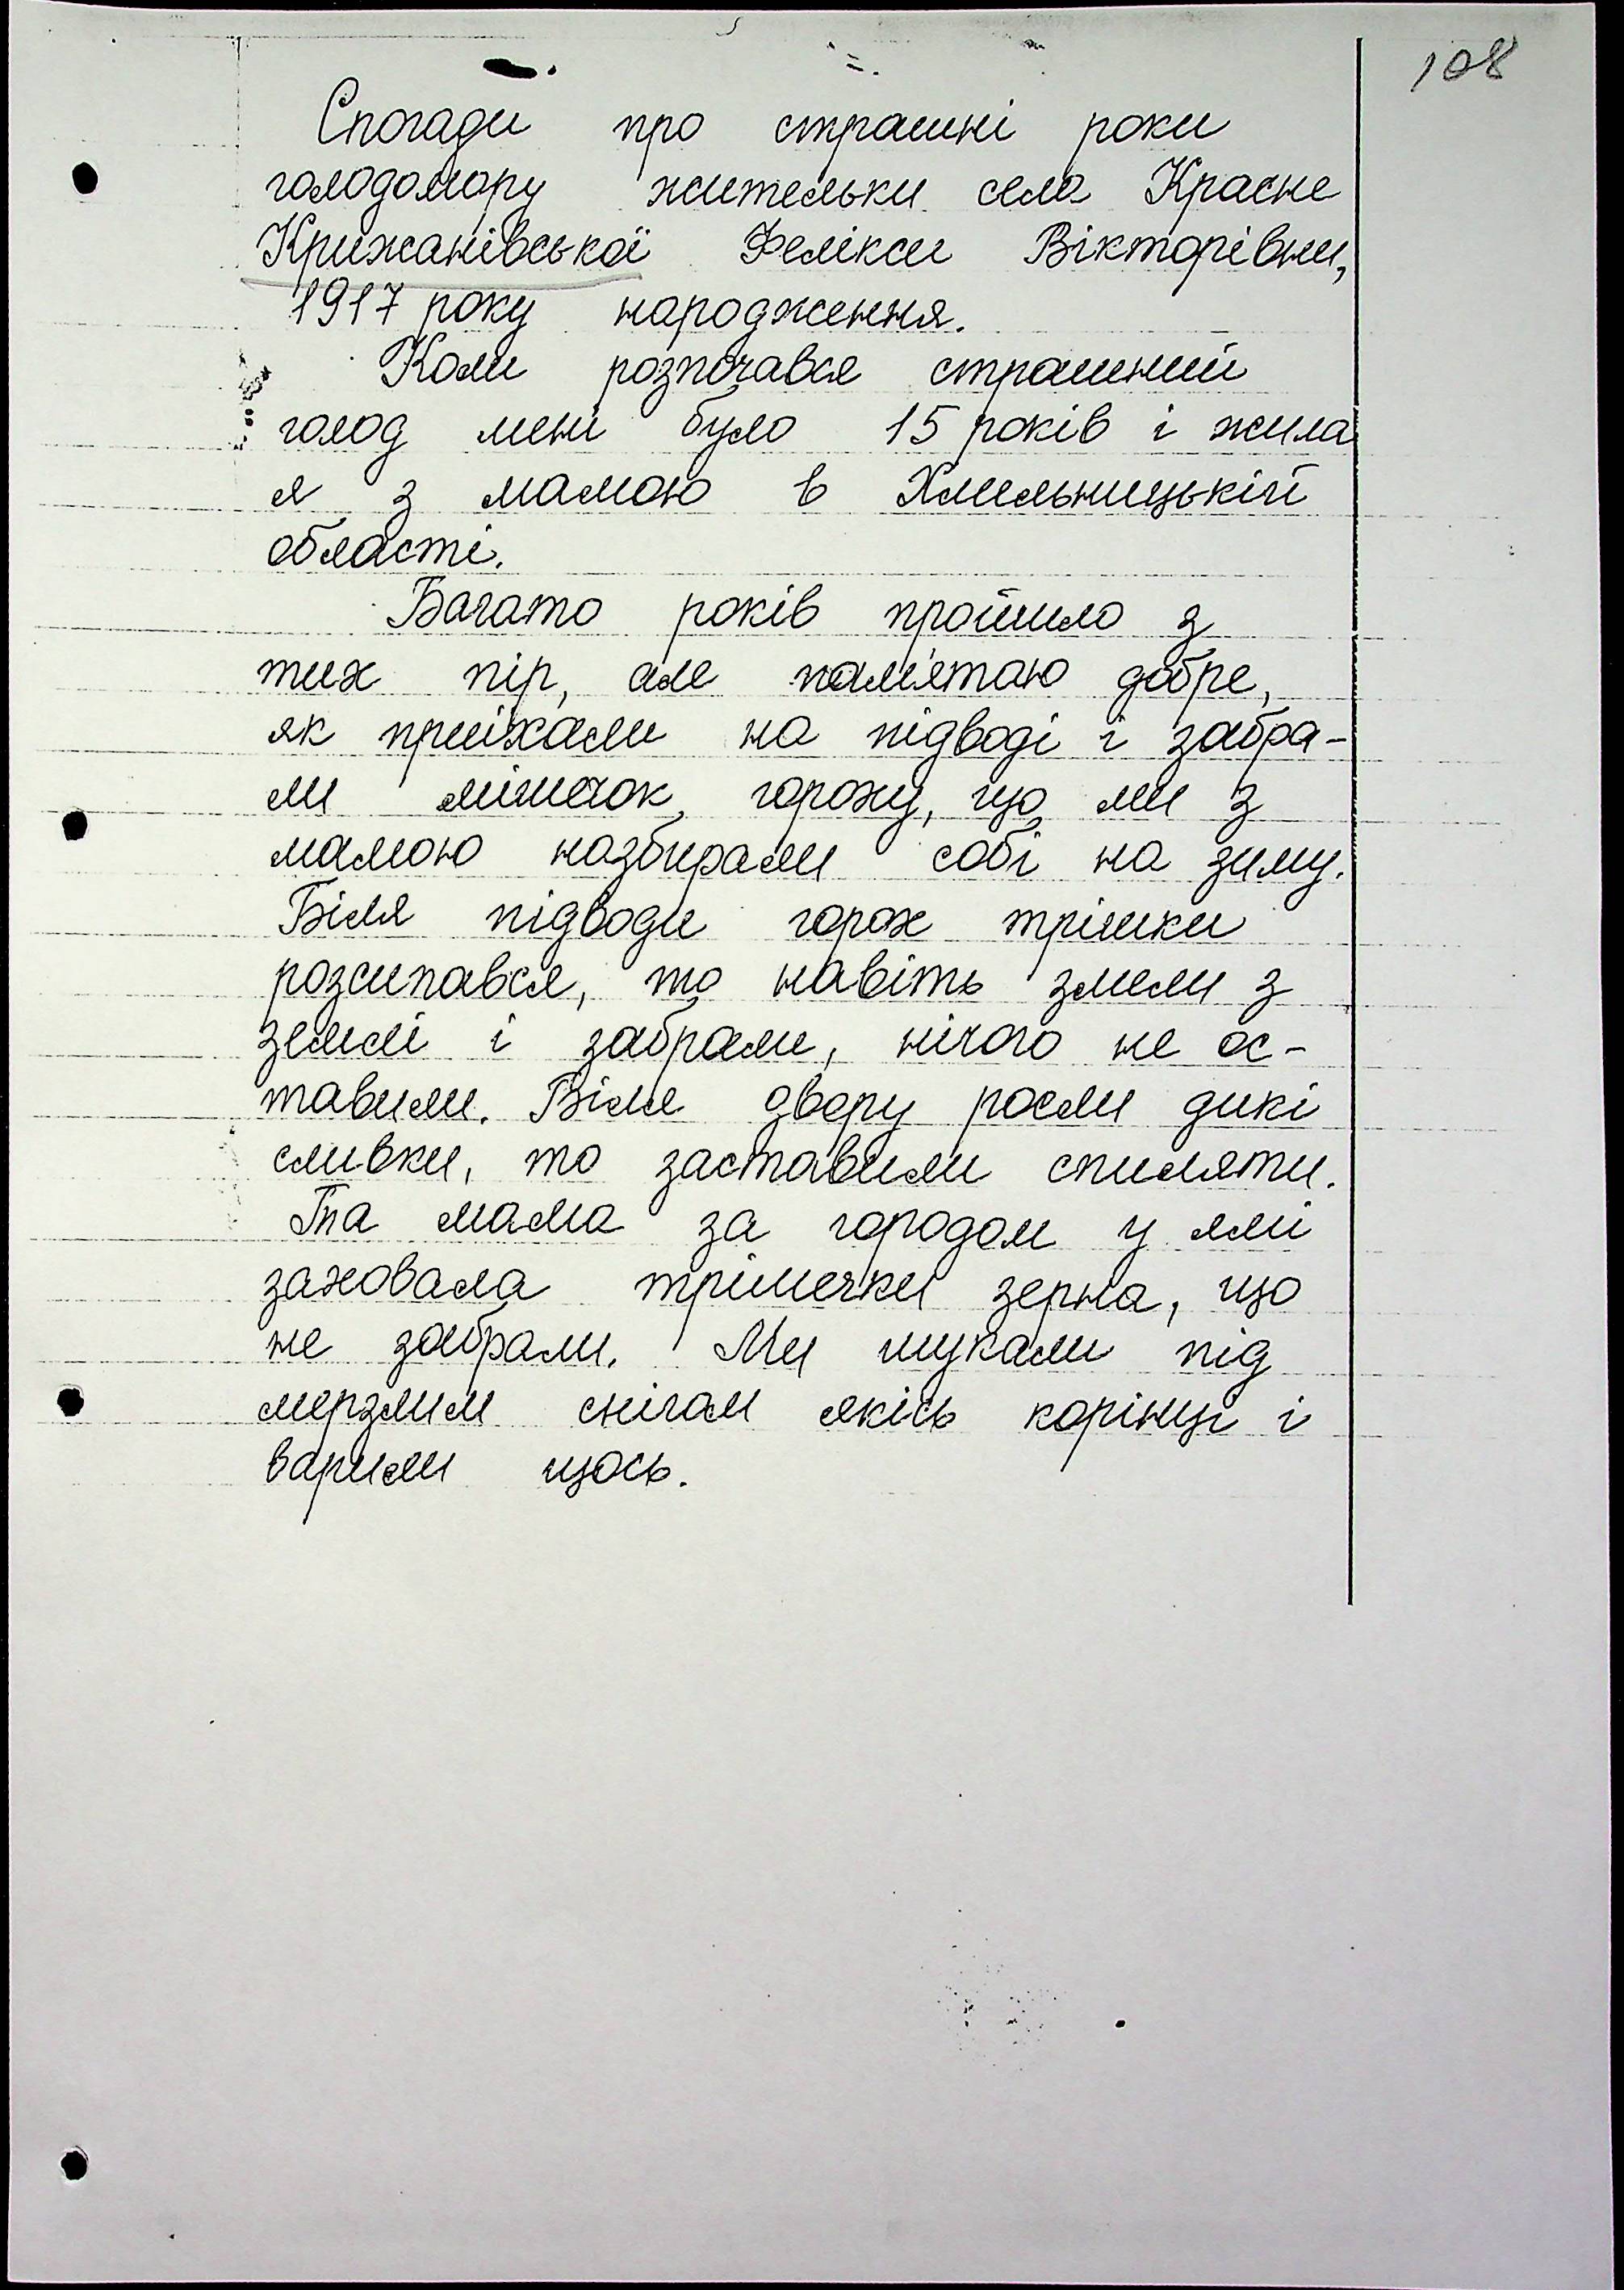 108
Спогади про страшні роки
голодомору жительки села Красне
Крижанівської Фелікси Вікторівни,
1917 року народження.
Коли розпочався страшний
голод мені було 15 років і жила
я з мамою в Хмельницькій
області.
Багато років пройшло з
тих пір, але пам'ятаю добре,
як приїхали на підводі і забра-
ли мішечок гороху, що ми з
мамою назбирали собі на зиму.
Біля підводи горох трішки
розсипався, то навіть змели з
землі і забрали, нічого не ос-
тавили. Біля двору росли дикі
сливки, то заставили спиляти.
Та мама за городом у ямі
заховала трішечки зерна, що
не забрали. Ми шукали під
мерзлим снігом якісь корінці і
варили щось.